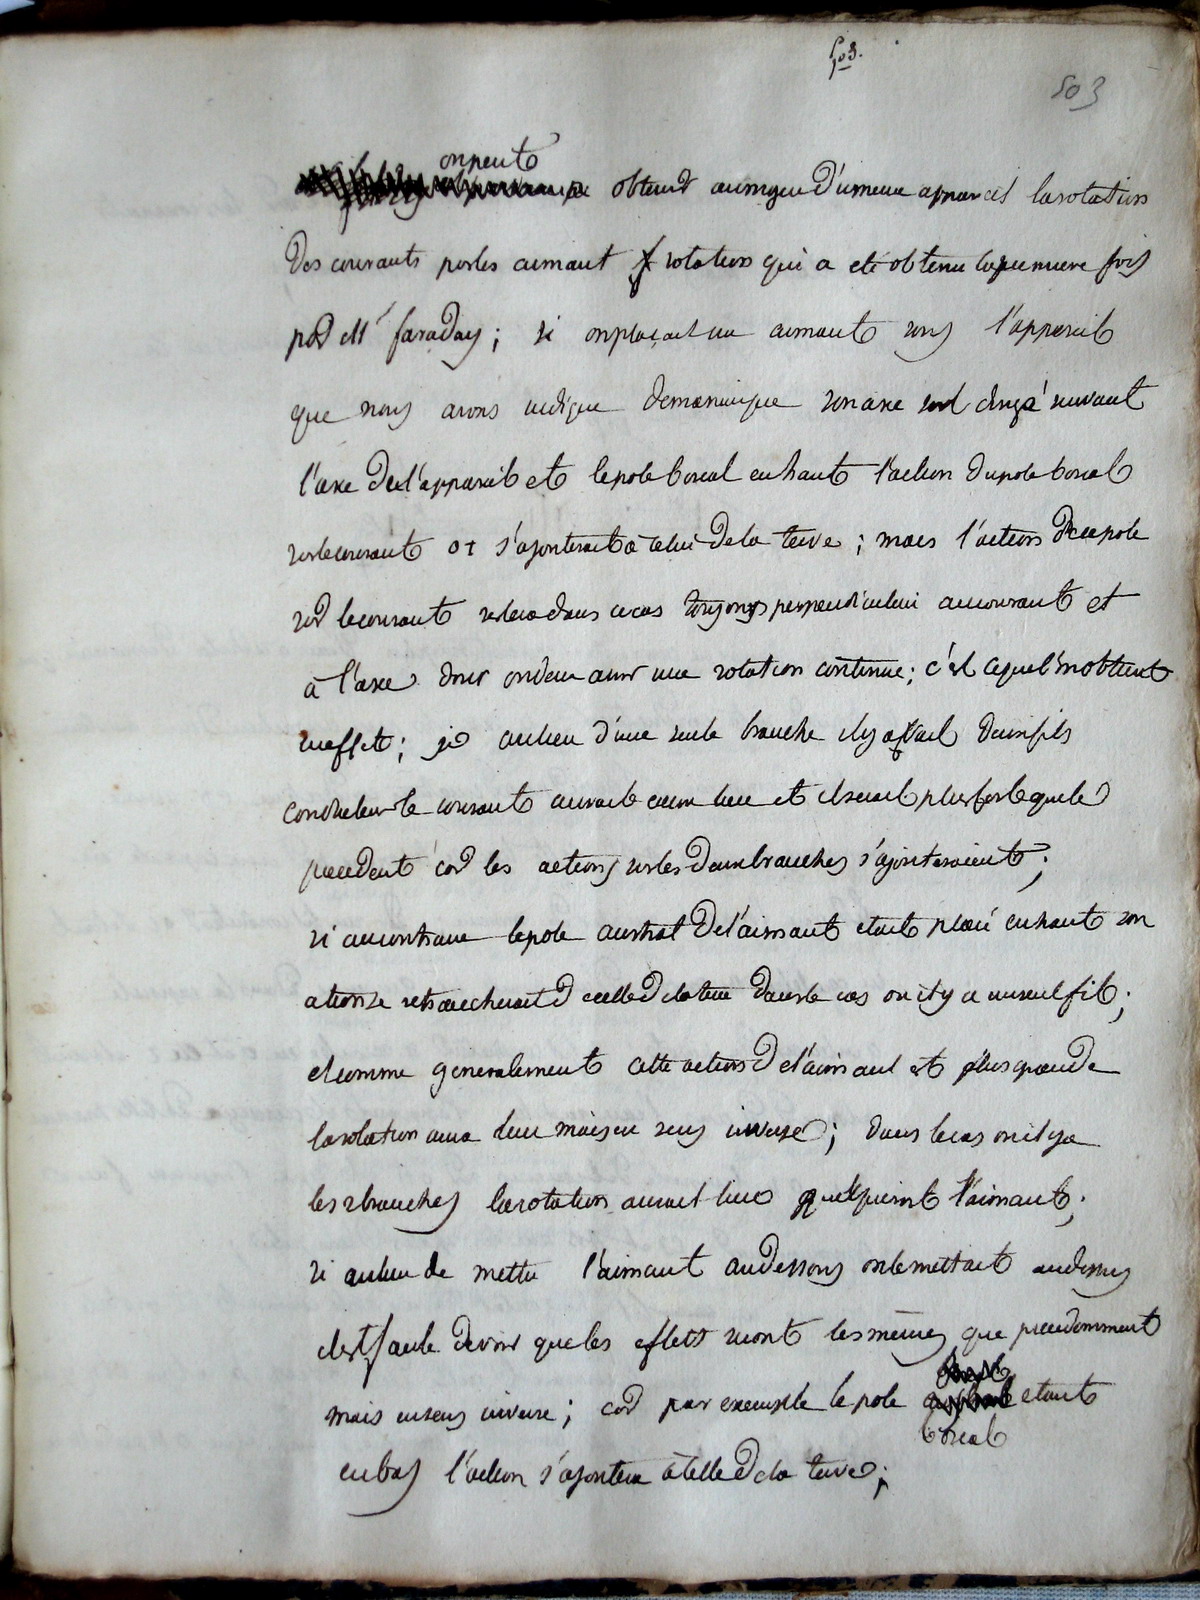 503.
503
on peut
obtenir au moyen d'un meme appareil la rotation
des courants par les aimant rotation qui a eté obtenu la premiere fois
par Mr faraday; si on plaçait un aimant sous l'appareil
que nous avons indiqué de maniere que son axe soit dirigé suivant
l'axe de l'appareil et le pole boreal en haut l'action du pole boreal
sur le courant s'ajouterait à celui de la terre; mais l'action de ce pole
sur le courant sera dans ce cas toujours perpendiculaire au courant et
à l'axe donc on devra avoir une rotation continue; c'est ce que l'on obtient
en effet; si au lieu d'une seule branche il y avait deux fils
conducteur le courant aurait encore lieu et il serait plus fort que le
precedent car les actions sur les deux branches s'ajouteraient;
si au contraire le pole austral de l'aimant etait placé en haut son
action se retrancherait de celle de la terre dans le cas ou il y a un seul fil;
et comme generalement cette action de l'aimant est plus grande
la rotation aura lieu mais en sens inverse; dans le cas ou il y a
les 2 branches la rotation aurait lieu l'aimant;
si au lieu de mettre l'aimant au dessous on le mettait au dessus
il est facile de voir que les effets seront les mêmes que precedemment
mais en sens inverse; car par exemple le pole etant
boreal
en bas l'action s'ajoutera à celle de la terre;